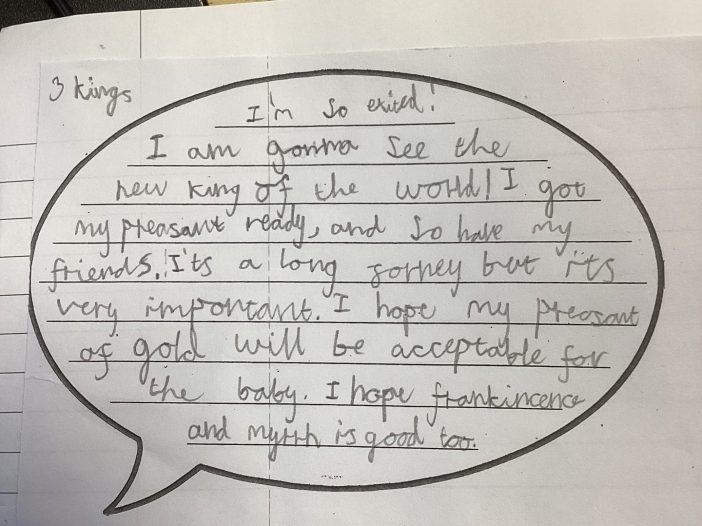 3 kings
I'm so exited!
I am gonna see the
new king of the world! I got
my preasant ready, and so have my
friends. I'ts a long jorney but its
very important. I hope my preasant
of gold will be acceptable for
the baby. I hope frankincence
and myrrh is good too.